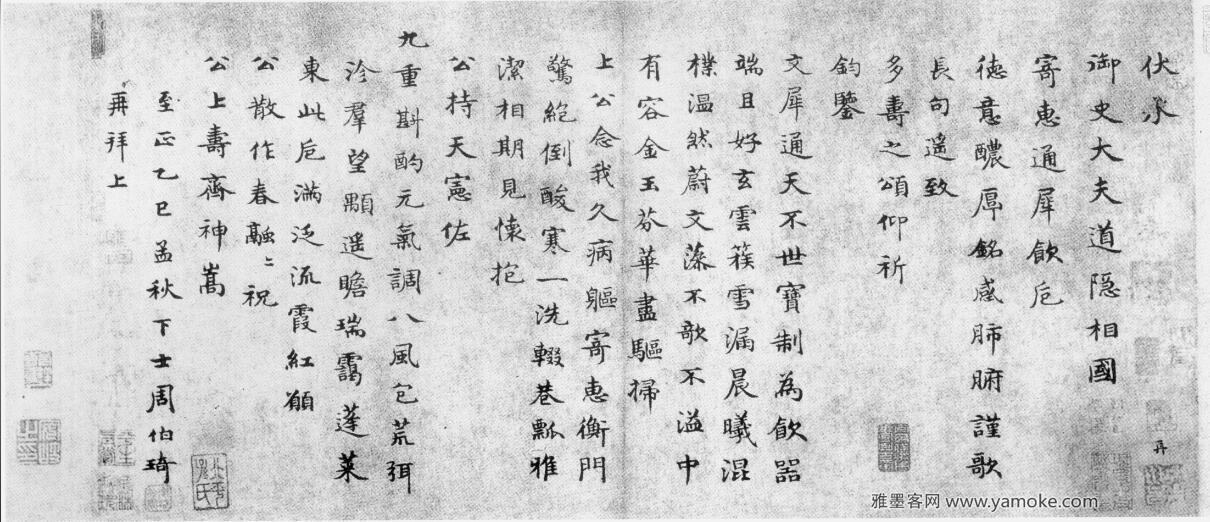 伏承
御史大夫道隐相國
寄惠通犀飲卮
德意醲厚銘感肺腑謹歌
長句遥致
多壽之頌仰祈
鈞鑒
文犀通天不世寶制為飲器
端且好玄雲簇雪漏晨曦混
樸温然蔚文藻不欹不溢中
有容金玉芬華盡驅掃
上公念我久病軀寄惠衡門
驚絶倒酸寒一洗輟巷瓢雅
潔相期見懷抱
公持天憲佐
九重斟酌元氣調八風包荒弭
沴羣望顒遥瞻瑞靄蓬萊
東此卮滿泛流霞紅願
公散作春融〻祝
公上壽齊神嵩
至正乙巳孟秋下士周伯琦
再拜上
再
雅墨客网 www.yamoke.com